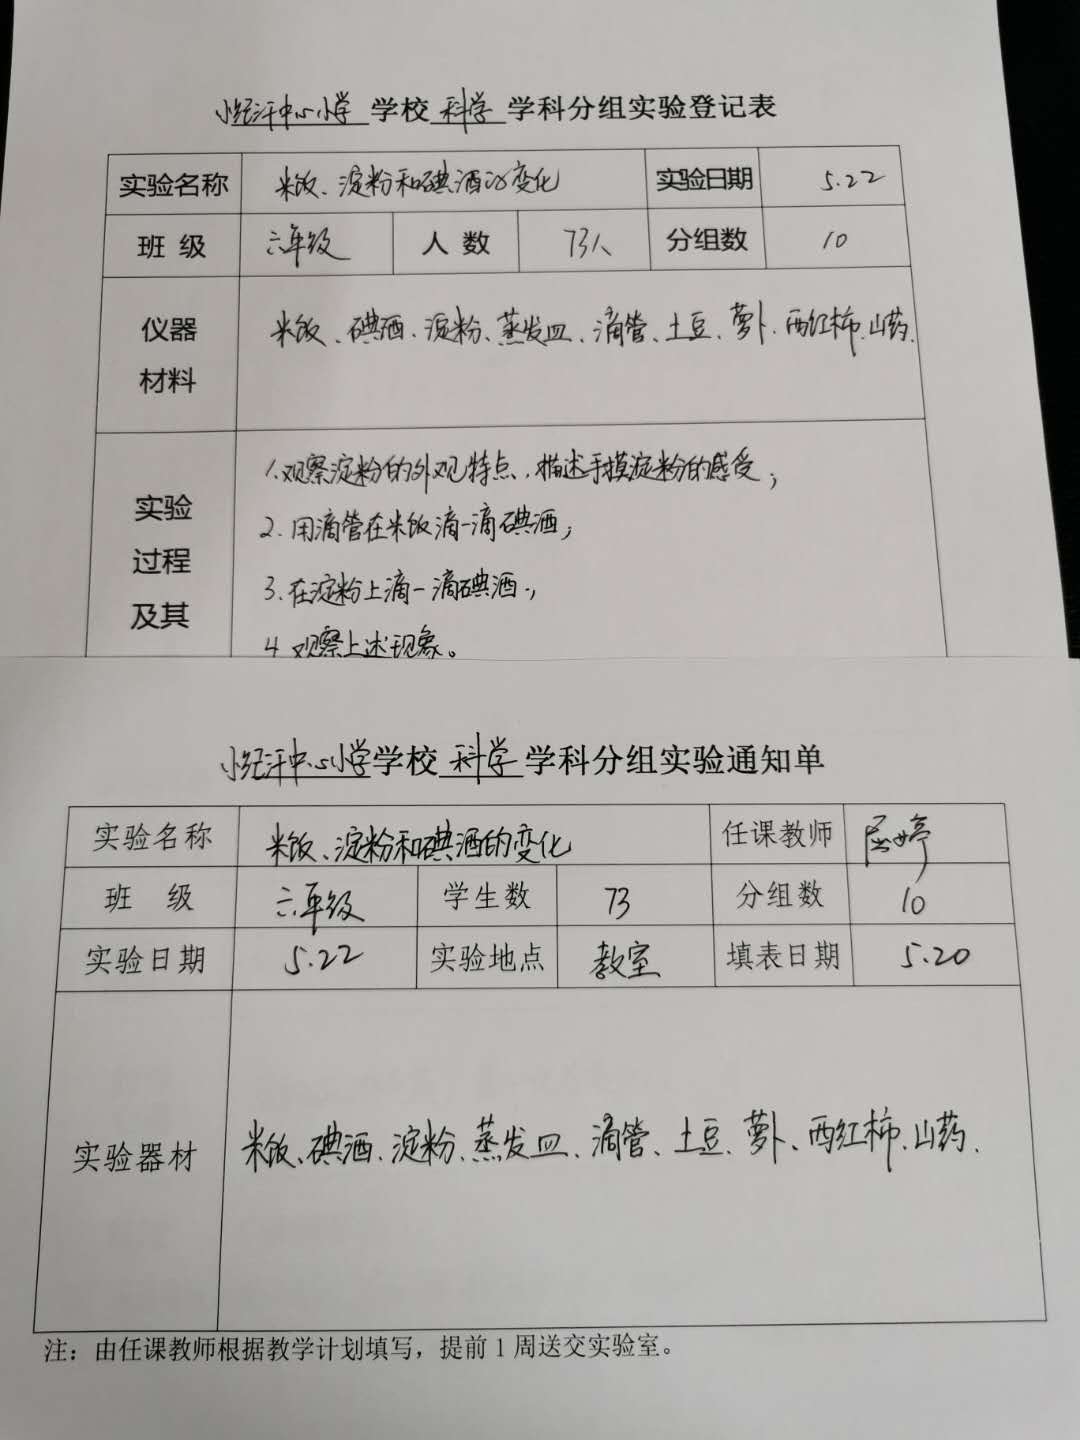 小纪汗中心小学 学校 科学 学科分组实验登记表
实验名称 米饭、淀粉和碘酒的变化 实验日期 5.22
班 级 六年级 人 数 73人 分组数 10
仪器
材料
米饭、碘酒、淀粉、蒸发皿、滴管、土豆、萝卜、西红柿、山药.
实验
过程
及其
1.观察淀粉的外观特点,描述手摸淀粉的感受;
2.用滴管在米饭滴一滴碘酒;
3.在淀粉上滴一滴碘酒;
4.观察上述现象。
小纪汗中心小学学校 科学 学科分组实验通知单
实验名称 米饭、淀粉和碘酒的变化 任课教师 屈婷
班 级 六年级 学生数 73 分组数 10
实验日期 5.22 实验地点 教室 填表日期 5.20
实验器材 米饭、碘酒、淀粉、蒸发皿、滴管、土豆、萝卜、西红柿、山药.
注：由任课教师根据教学计划填写，提前1周送交实验室。